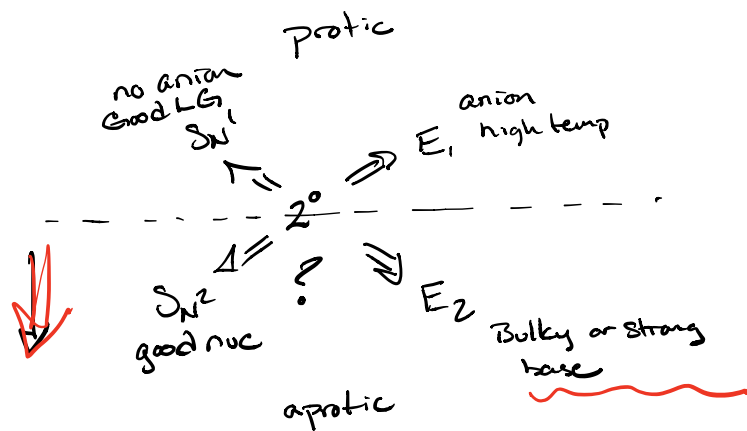 protic
no anion
Good LG
SN1
anion
E1 high temp
2°
?
SN2
good nuc
E2
Bulky or strong
base
aprotic